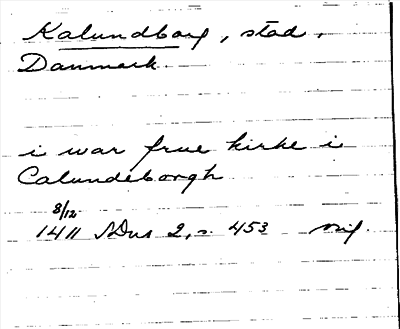 Kalundborg, stad,
Danmark
i war frue kirke i
Calundeborgh
8/12
1411 SDns 2, s. 453 orig.